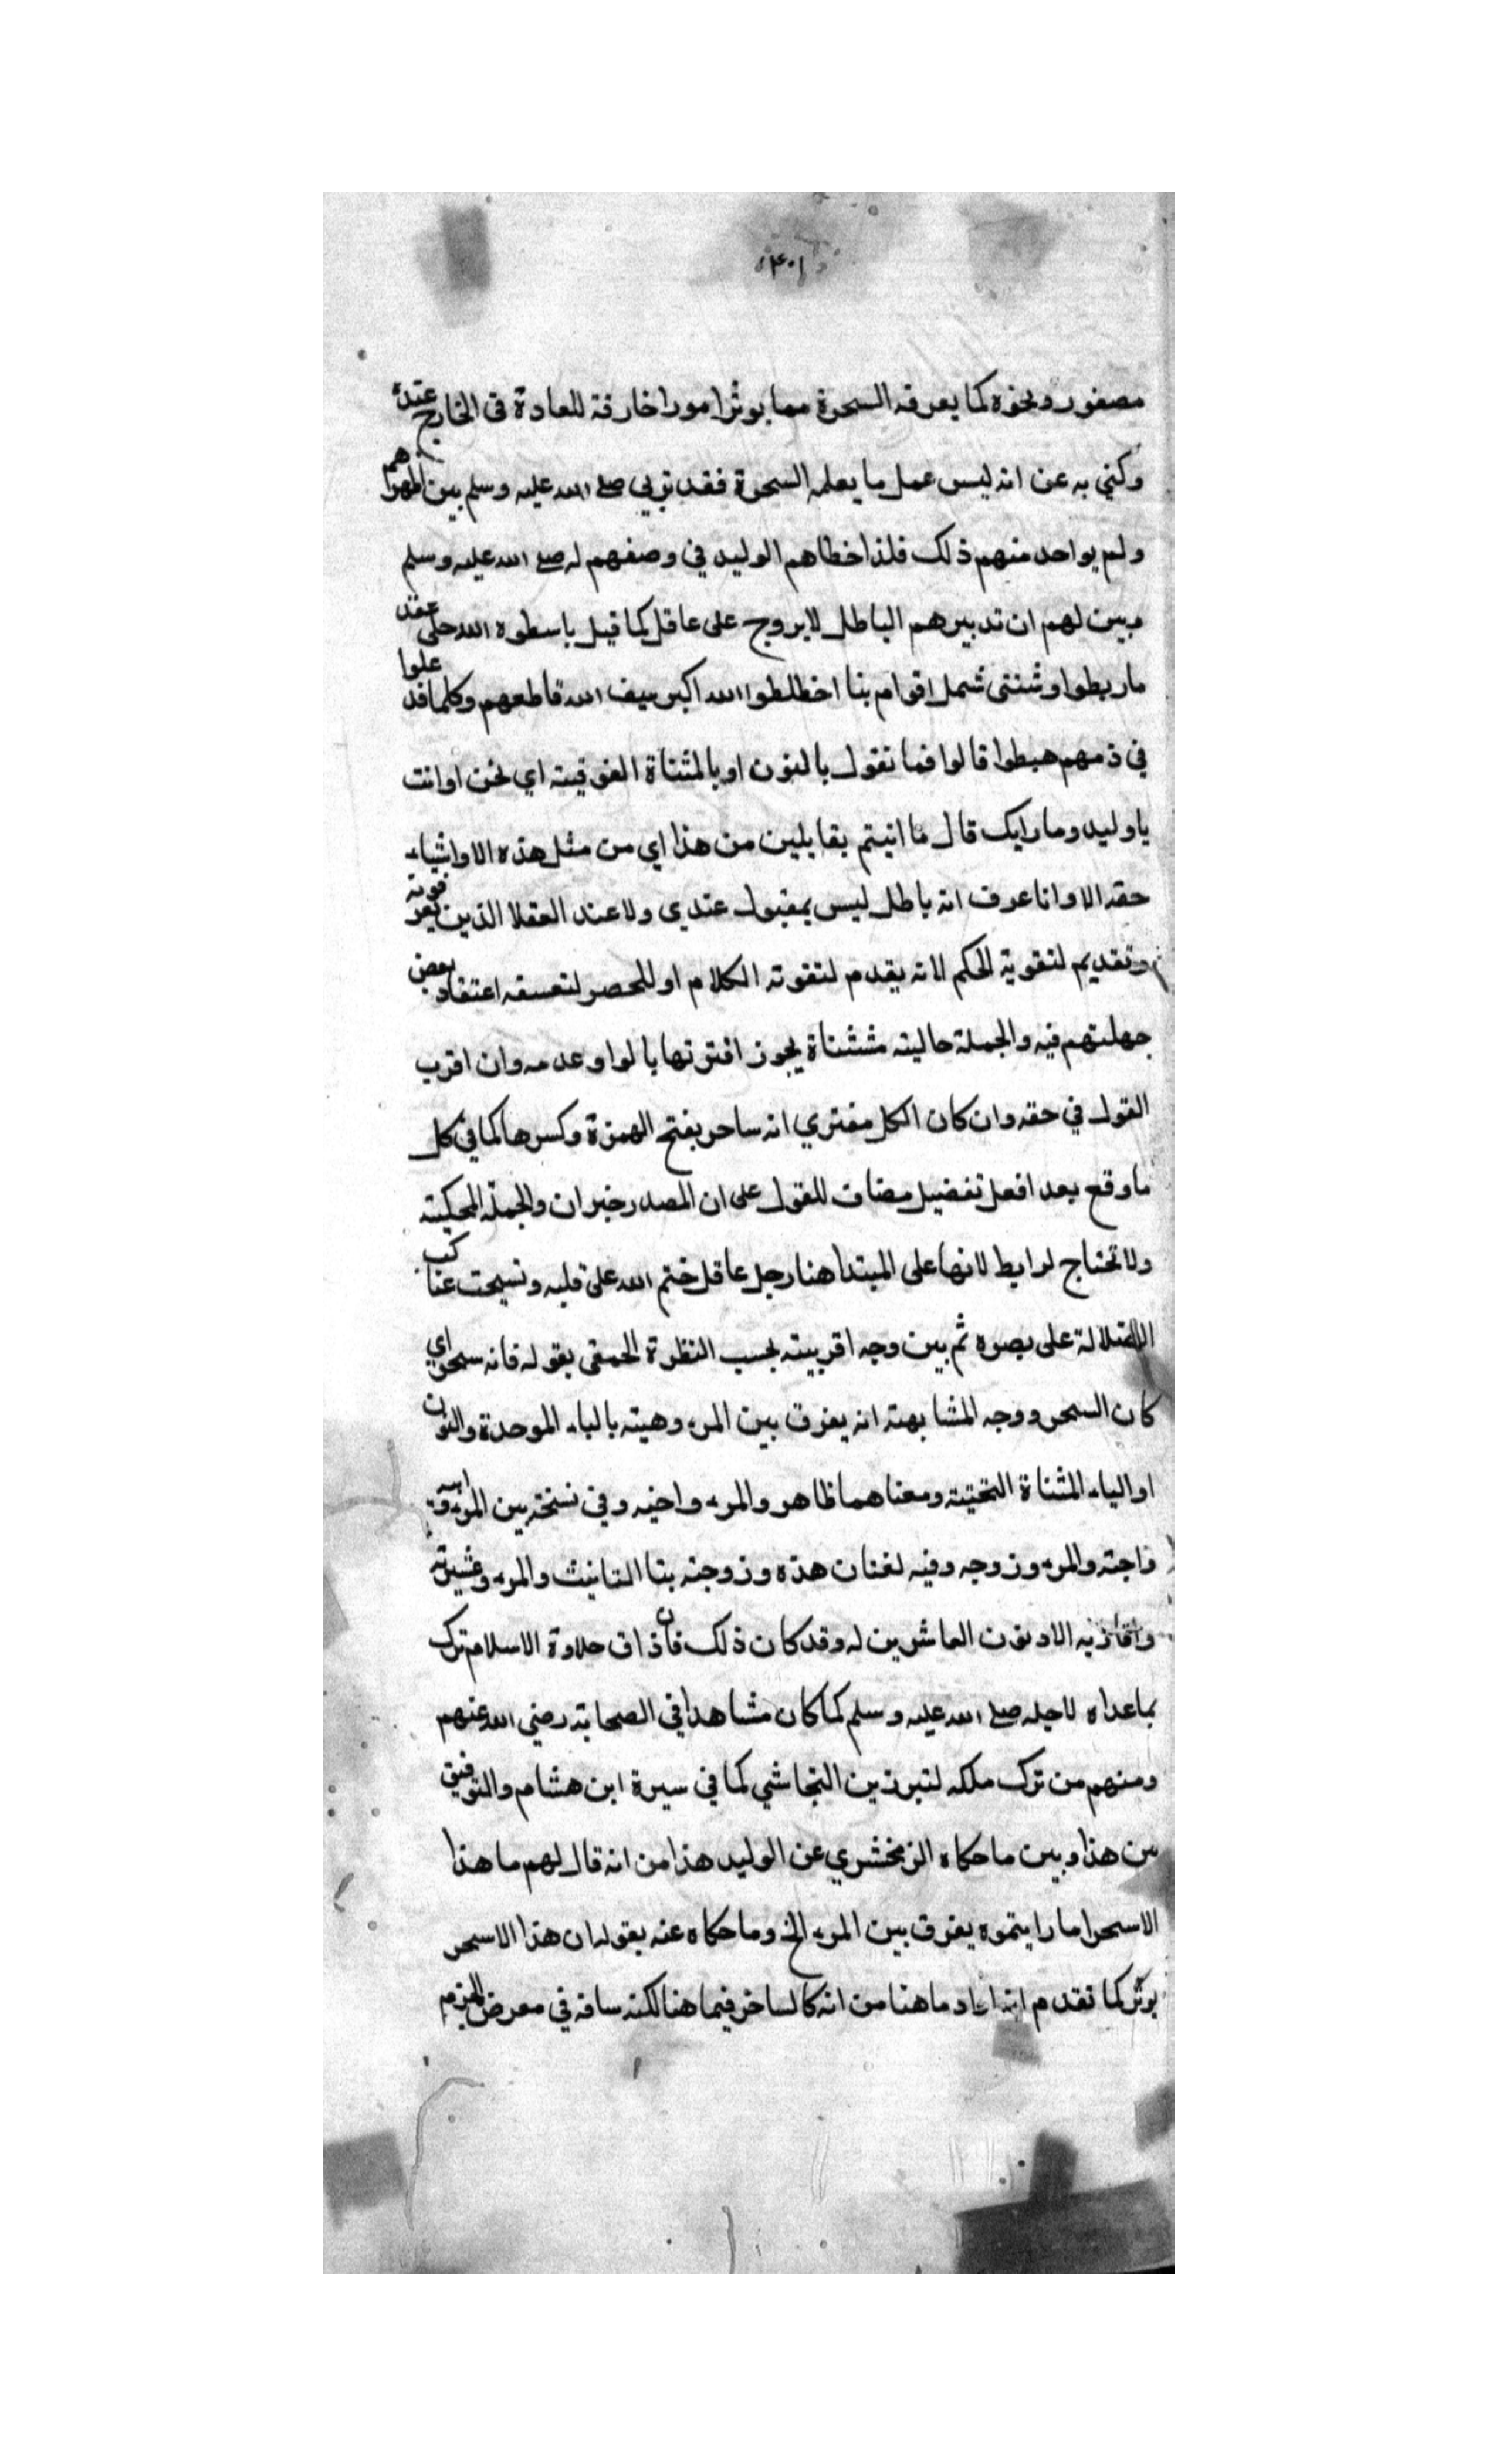 ٤٠١
مصفور ونحوه كما يعرفه السحرة مما يوثر امورا خارقة للعادة في الخارج عقده
وكني به عن انه ليس عمل ما يعلمه السحرة فقد تربي صلى الله عليه وسلم بين اظهرهم
ولم يواحد منهم ذلك فلذا خطاهم الوليد في وصفهم له صلى الله عليه وسلم
مبين لهم ان تدبيرهم الباطل لا يروج على عاقل كما قيل باسطوه الله حلى عقد
ما ربطوا وشنتى شمل اقوام بنا اختلطوا الله اكبر سيف الله قاطعهم وكلما قد علوا
في ذمهم هبطوا قالوا فما نقول بالنون او بالمثناة الفوقيته اي نحن او انت
يا وليد وما رايك قال ما انيتم بقايلين من هذا اي من مثل هذه الا واشياء
حقه الا وانا عرف انه باطل ليس بمقبول عندي ولا عند العقلا الذين يعرفونه
وتقديم لتقوية الحكم لانه يقدم لتقوته الكلام او للحصر لتعسفه اعتقاد بعض
جهلتهم فيه والجملة حاليته مثشناة يجوز اقترنها بالواو وعدمه وان اقرب
القول في حقه وان كان الكل مفتري انه ساحر بفتح الهمزة وكسرها كما في كل
ما وقع بعد افعل تفضيل مضاف للقول على ان المصدر خبر ان والجملة المحكيته
ولا تحتاج لرابط لانها على المبتدا هنا رجل عاقل ختم الله على قلبه ونسجت عناكب
الضلالة على بصره ثم بين وجه اقربيته بحسب النظرة الحمقى بقوله فانه سحر اي
كان السحر ووجه المشابهته انه يفرق بين المرء وهيته بالباء الموحدة والنون
او الياء المثناة التحتيته ومعناهما ظاهر والمرء واخيه وفي نسخته بين المرء وابنه
زاجته والمرء وزوجه وفيه لغتان هذه وزوجته بتا التانيث والمرء وعشيرته
واقاربه الادنون العاشرين له وقد كان ذلك فان ذاق حلاوة الاسلام ترك
بماعداه لاجله صلى الله عليه وسلم كما كان مشاهدا في الصحابة رضي الله عنهم
ومنهم من ترك ملكه لتبرزين النجاشي كما في سيرة ابن هشام والتوفيق
بين هذا وبين ما حكاه الزمخشري عن الوليد هذا من انه قال لهم ما هذا
الاسحر اما رايتموه يفرق بين المرء الخ وما حكاه عنه بقوله ان هذا الاسحر
يوثر كما تقدم انه اراد ما هنا من انه كالساخر فيما هنا لكنه ساقه في معرض الجزم